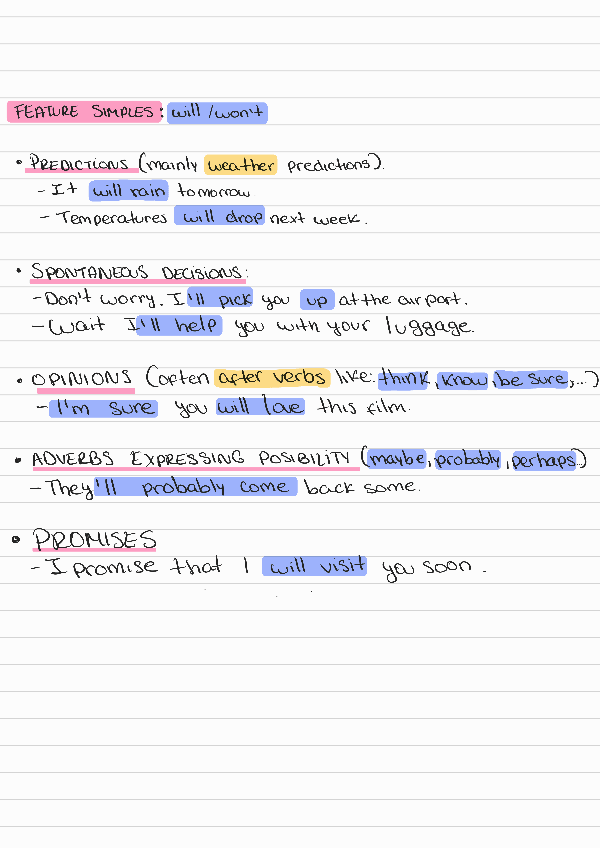 FEATURE SIMPLES: will / won't
• PREDICTIONS (mainly weather predictions).
- It will rain tomorrow
- Temperatures will drop next week.
• SPONTANEOUS DECISIONS:
- Don't worry. I'll pick you up at the airport.
- Wait I'll help you with your luggage.
• OPINIONS (often after verbs like: think, know, be sure,...)
- I'm sure you will love this film.
• ADVERBS EXPRESSING POSIBILITY (maybe, probably, perhaps..)
- They'll probably come back some.
• PROMISES
- I promise that I will visit you soon.